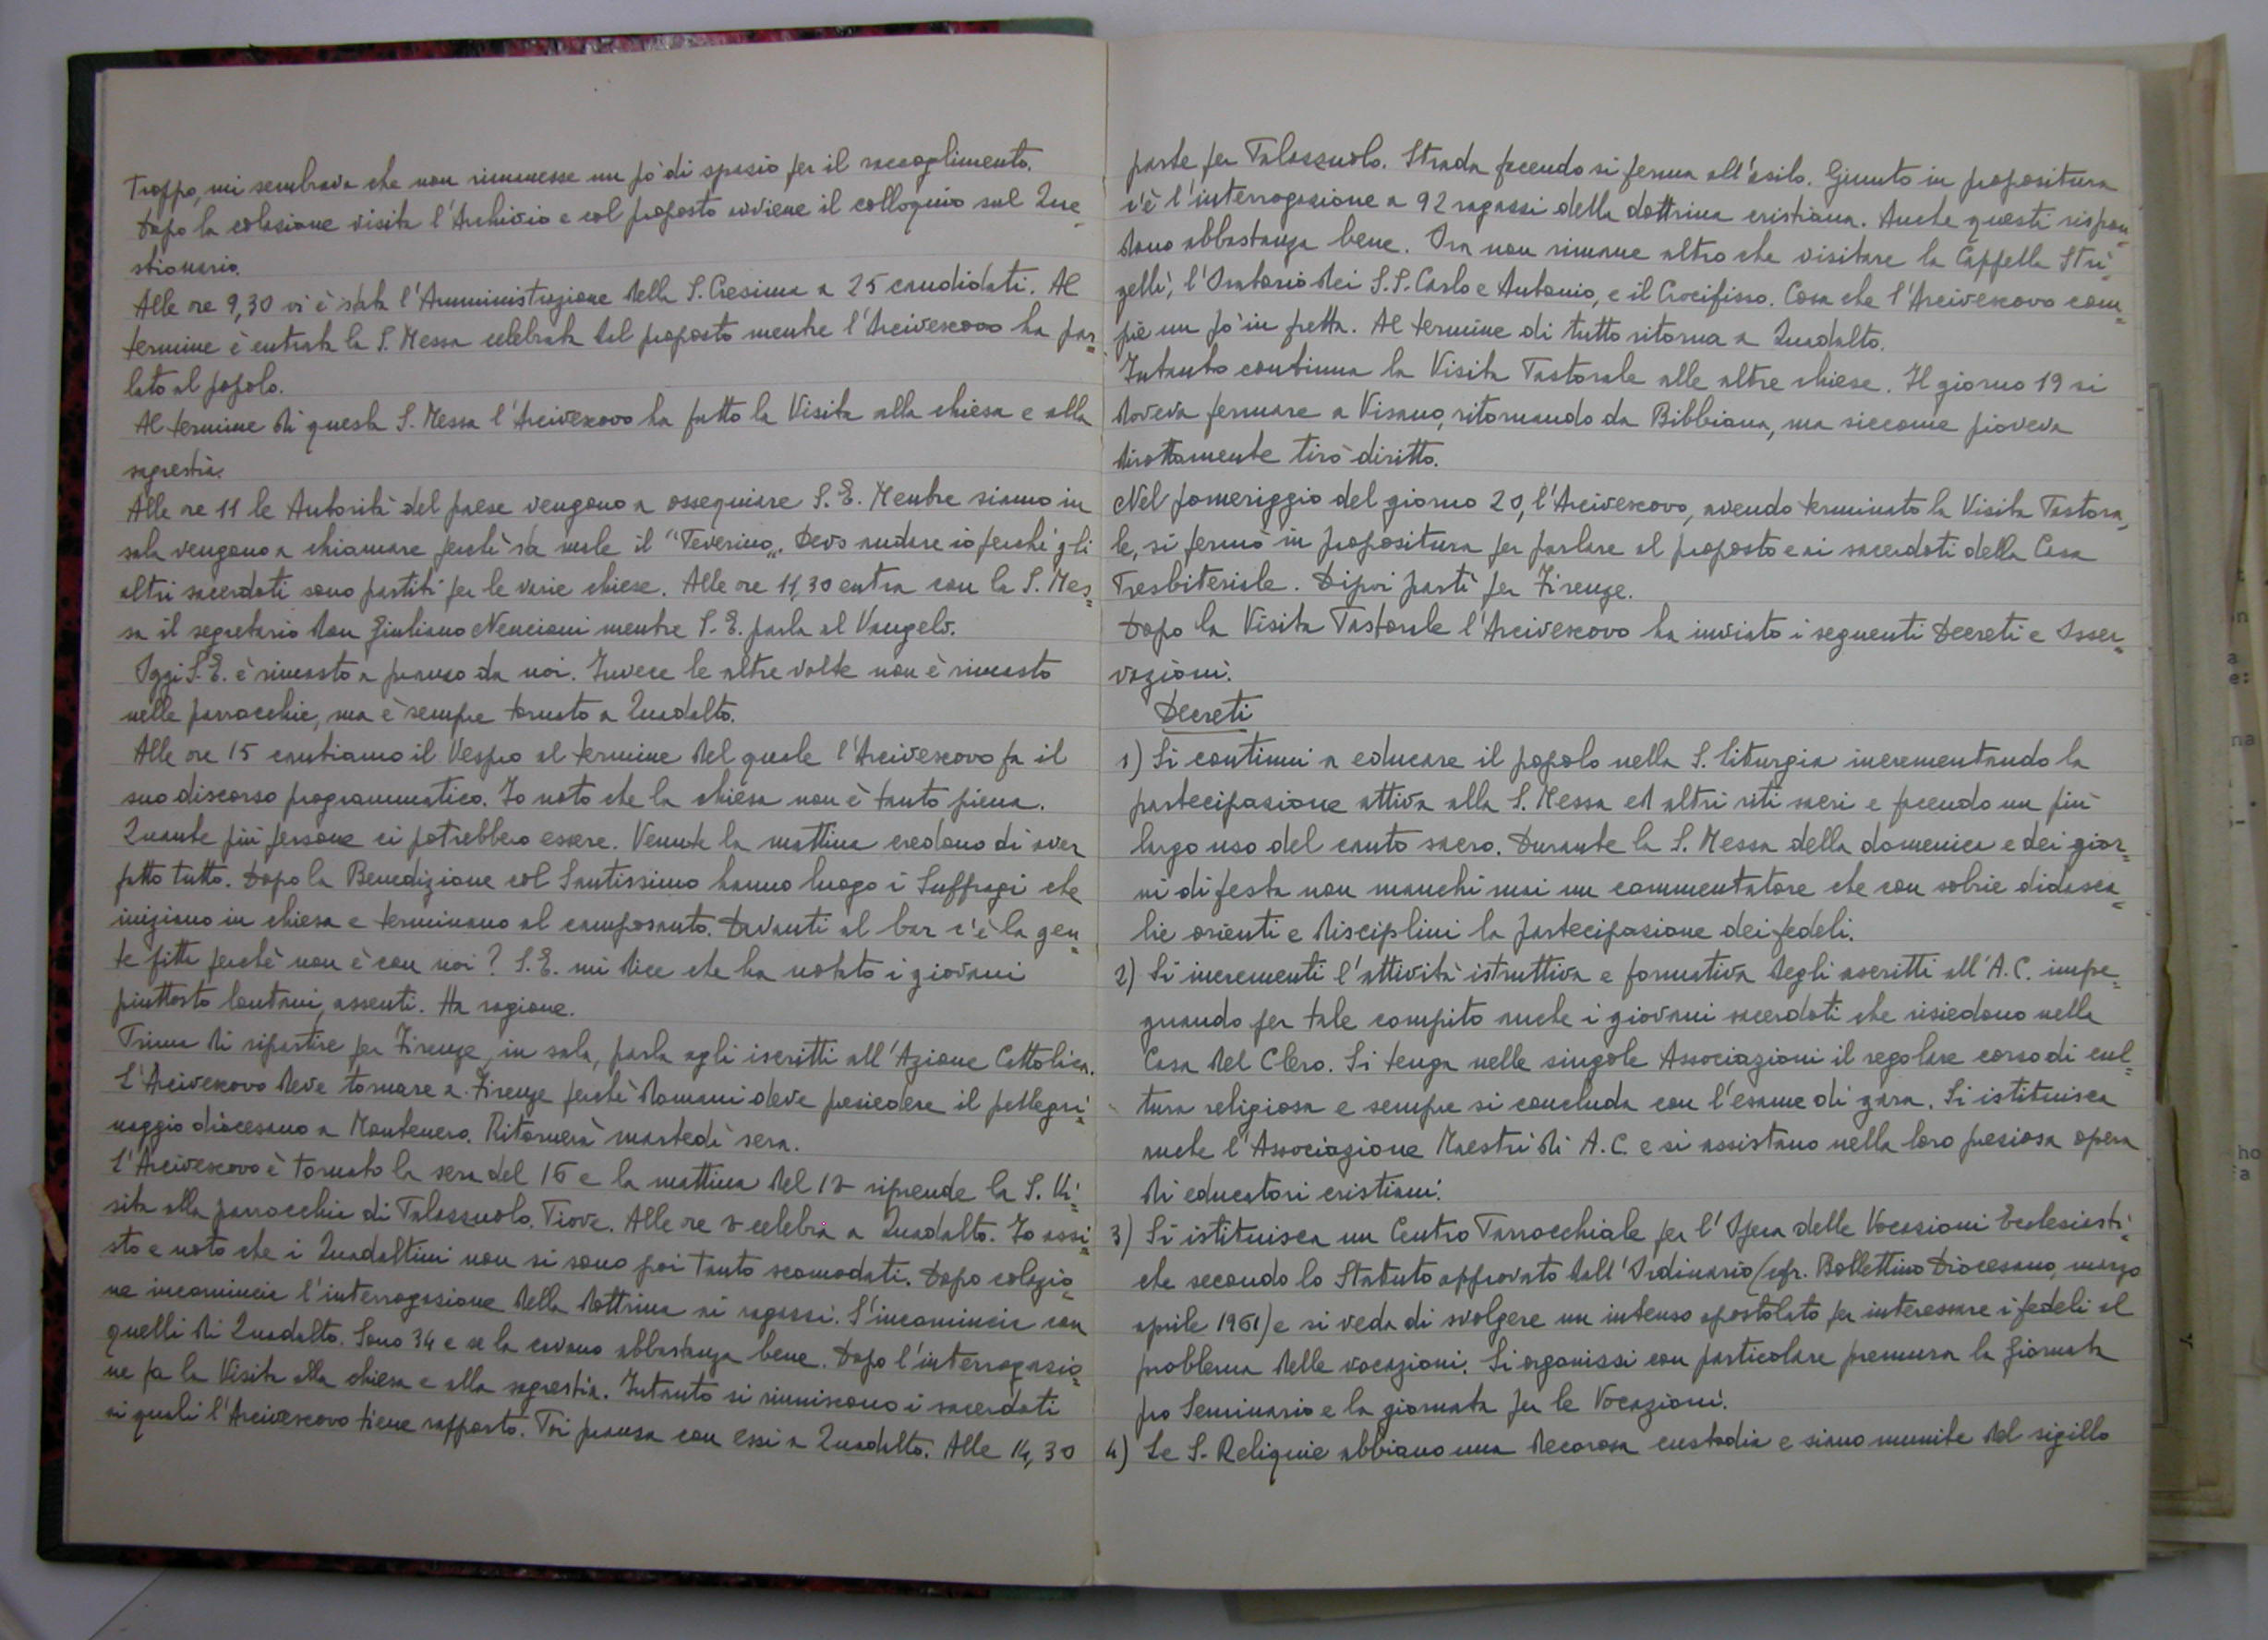 Troppo, mi sembrava che non rimanesse un pò di spazio per il raccoglimento.
Dopo la colazione visita l'Archivio e col proposto avviene il colloquio sul Que=
stionario.
Alle ore 9,30 vi è stata l'Amministrazione della S. Cresima a 25 candidati. Al
termine è entrata la S. Messa celebrata dal proposto mentre l'Arcivescovo ha par=
lato al popolo.
Al termine di questa S. Messa l'Arcivescovo ha fatto la Visita alla chiesa e alla
sagrestia.
Alle ore 11 le Autorità del paese vengono a ossequiare S. E. Mentre siamo in
sala vengono a chiamare perchè sta male il "Teverino". Devo andare io perchè gli
altri sacerdoti sono partiti per le varie chiese. Alle ore 11,30 entra con la S. Mes=
sa il segretario don Giuliano Nencioni mentre S. E. parla al Vangelo.
Oggi S. E. è rimasto a pranzo da noi. Invece le altre volte non è rimasto
nelle parrocchie, ma è sempre tornato a Quadalto.
Alle ore 15 cantiamo il Vespro al termine del quale l'Arcivescovo fa il
suo discorso programmatico. Io noto che la chiesa non è tanto piena.
Quante più persone ci potrebbero essere. Venute la mattina credono di aver
fatto tutto. Dopo la Benedizione col Santissimo hanno luogo i Suffragi che
iniziano in chiesa e terminano al camposanto. Davanti al bar c'è la gen=
te fitta perchè non è con noi? S. E. mi dice che ha notato i giovani
piuttosto lontani, assenti. Ha ragione.
Prima di ripartire per Firenze, in sala, parla agli iscritti all'Azione Cattolica.
L'Arcivescovo deve tornare a Firenze perchè domani deve presiedere il pellegri=
naggio diocesano a Montenero. Ritornerà martedì sera.
L'Arcivescovo è tornato la sera del 16 e la mattina del 17 riprende la S. Vi=
sita alla parrocchia di Palazzuolo. Piove. Alle ore 7 celebra a Quadalto. Io assi=
sto e noto che i Quadaltini non si sono poi tanto scomodati. Dopo colazio=
ne incomincia l'interrogazione della dottrina ai ragazzi. S'incomincia con
quelli di Quadalto. Sono 34 e se la cavano abbastanza bene. Dopo l'interrogazio=
ne fa la Visita alla chiesa e alla sagrestia. Intanto si riuniscono i sacerdoti
ai quali l'Arcivescovo tiene rapporto. Poi pranza con essi a Quadalto. Alle 14,30
parte per Palazzuolo. Strada facendo si ferma all'asilo. Giunto in propositura
c'è l'interrogazione a 92 ragazzi della dottrina cristiana. Anche questi rispon=
dono abbastanza bene. Ora non rimane altro che visitare la Cappella Stri=
gelli, l'Oratorio dei S.S. Carlo e Antonio, e il Crocifisso. Cosa che l'Arcivescovo com=
piè un pò in fretta. Al termine di tutto ritorna a Quadalto.
Intanto continua la Visita Pastorale alle altre chiese. Il giorno 19 si
doveva fermare a Visano, ritornando da Bibbiana, ma siccome pioveva
dirottamente tirò diritto.
Nel pomeriggio del giorno 20, l'Arcivescovo, avendo terminato la Visita Pastora=
le, si fermò in propositura per parlare al proposto e ai sacerdoti della Casa
Presbiteriale. Dipoi partì per Firenze.
Dopo la Visita Pastorale l'Arcivescovo ha inviato i seguenti Decreti e Osser=
vazioni.
Decreti
1) Si continui a educare il popolo nella S. liturgia incrementando la
partecipazione attiva alla S. Messa ed altri riti sacri e facendo un più
largo uso del canto sacro. Durante la S. Messa della domenica e dei gior=
ni di festa non manchi mai un commentatore che con sobrie didasca=
lie orienti e disciplini la partecipazione dei fedeli.
2) Si incrementi l'attività istruttiva e formativa degli ascritti all'A.C. impe=
gnando per tale compito anche i giovani sacerdoti che risiedono nella
Casa del Clero. Si tenga nelle singole Associazioni il regolare corso di cul=
tura religiosa e sempre si concluda con l'esame di gara. Si istituisca
anche l'Associazione Maestri di A.C. e si assistano nella loro preziosa opera
di educatori cristiani.
3) Si istituisca un Centro Parrocchiale per l'Opera delle Vocazioni Ecclesiasti=
che secondo lo Statuto approvato dall'Ordinario (cfr. Bollettino Diocesano, marzo
aprile 1961) e si veda di svolgere un intenso apostolato per interessare i fedeli al
problema delle vocazioni. Si organizzi con particolare premura la Giornata
pro Seminario e la giornata per le Vocazioni.
4) Le S. Reliquie abbiano una decorosa custodia e siano munite del sigillo